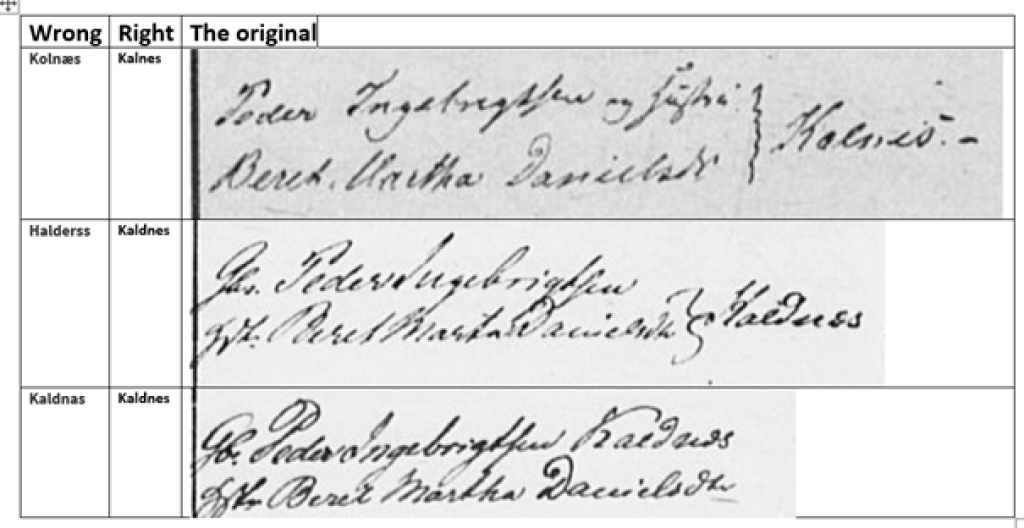 Wrong Right The original
Kolnæs Kalnes
Peder Ingebrigtsen og Hustru
Beret Martha Danielsdr } Kolnes. -
Halderss Kaldnes
Gbr. Peder Ingebrigtsen
Hst. Beret Marta Danielsdtr } Kaldness
Kaldnas Kaldnes
Gbr. Peder Ingebrigtsen Kaldnæs
Hstr Beret Martha Danielsdtr